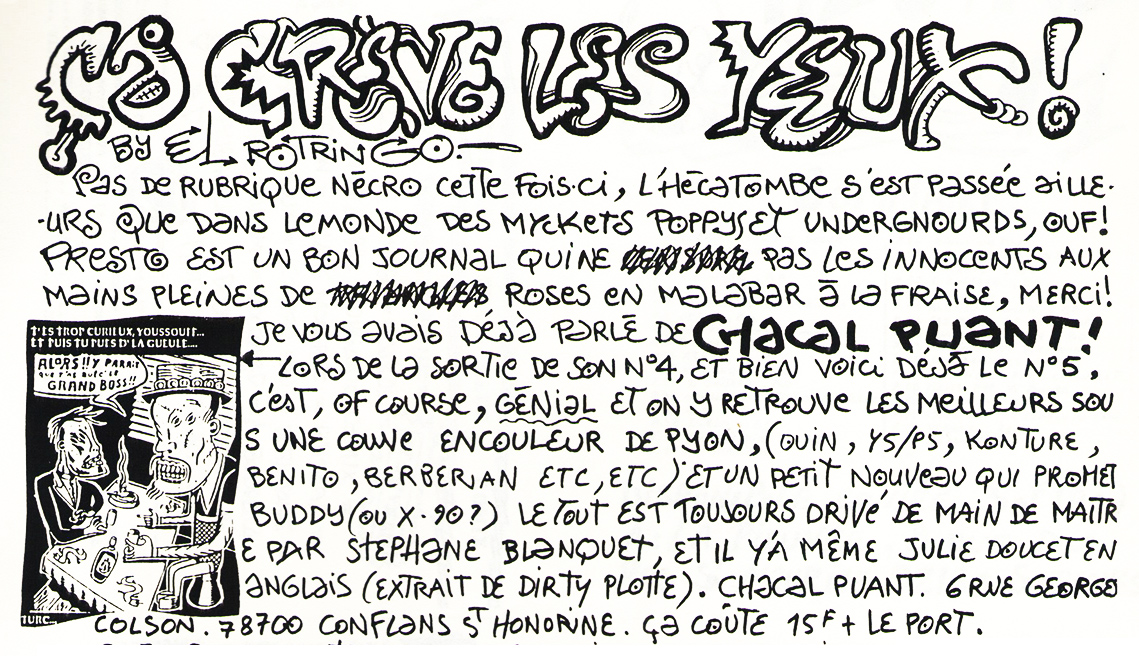 ÇA CRÈVE LES YEUX!
BY EL ROTRINGO.
PAS DE RUBRIQUE NÉCRO CETTE FOIS-CI, L'HÉCATOMBE S'EST PASSÉE AILLE-
-URS QUE DANS LEMONDE DES MYCKETS POPPYS ET UNDERGNOURDS, OUF!
PRESTO EST UN BON JOURNAL QUI NE PAS LES INNOCENTS AUX
MAINS PLEINES DE ROSES EN MALABAR À LA FRAISE, MERCI!
T'ES TROP CURIEUX, YOUSSOUF...
ET PUIS TU PUES D'LA GUEULE....
ALORS!! Y PARAIT
QUE T'AS BUTÉ LE
GRAND BOSS!!
TURC...
JE VOUS AVAIS DÉJÀ PARLÉ DE CHACAL PUANT!
LORS DE LA SORTIE DE SON N°4, ET BIEN VOICI DÉJÀ LE N°5,
C'EST, OF COURSE, GÉNIAL ET ON Y RETROUVE LES MEILLEURS SOU
S UNE COUVE EN COULEUR DE PYON, (OUIN, Y5/P5, KONTURE,
BENITO, BERBERIAN ETC, ETC) ET UN PETIT NOUVEAU QUI PROMET
BUDDY (OU X-90?) LE TOUT EST TOUJOURS DRIVÉ DE MAIN DE MAITR
E PAR STEPHANE BLANQUET, ET IL Y'A MÊME JULIE DOUCET EN
ANGLAIS (EXTRAIT DE DIRTY PLOTTE). CHACAL PUANT. 6 RUE GEORGES
COLSON. 78700 CONFLANS ST HONORINE. ÇA COÛTE 15F + LE PORT.